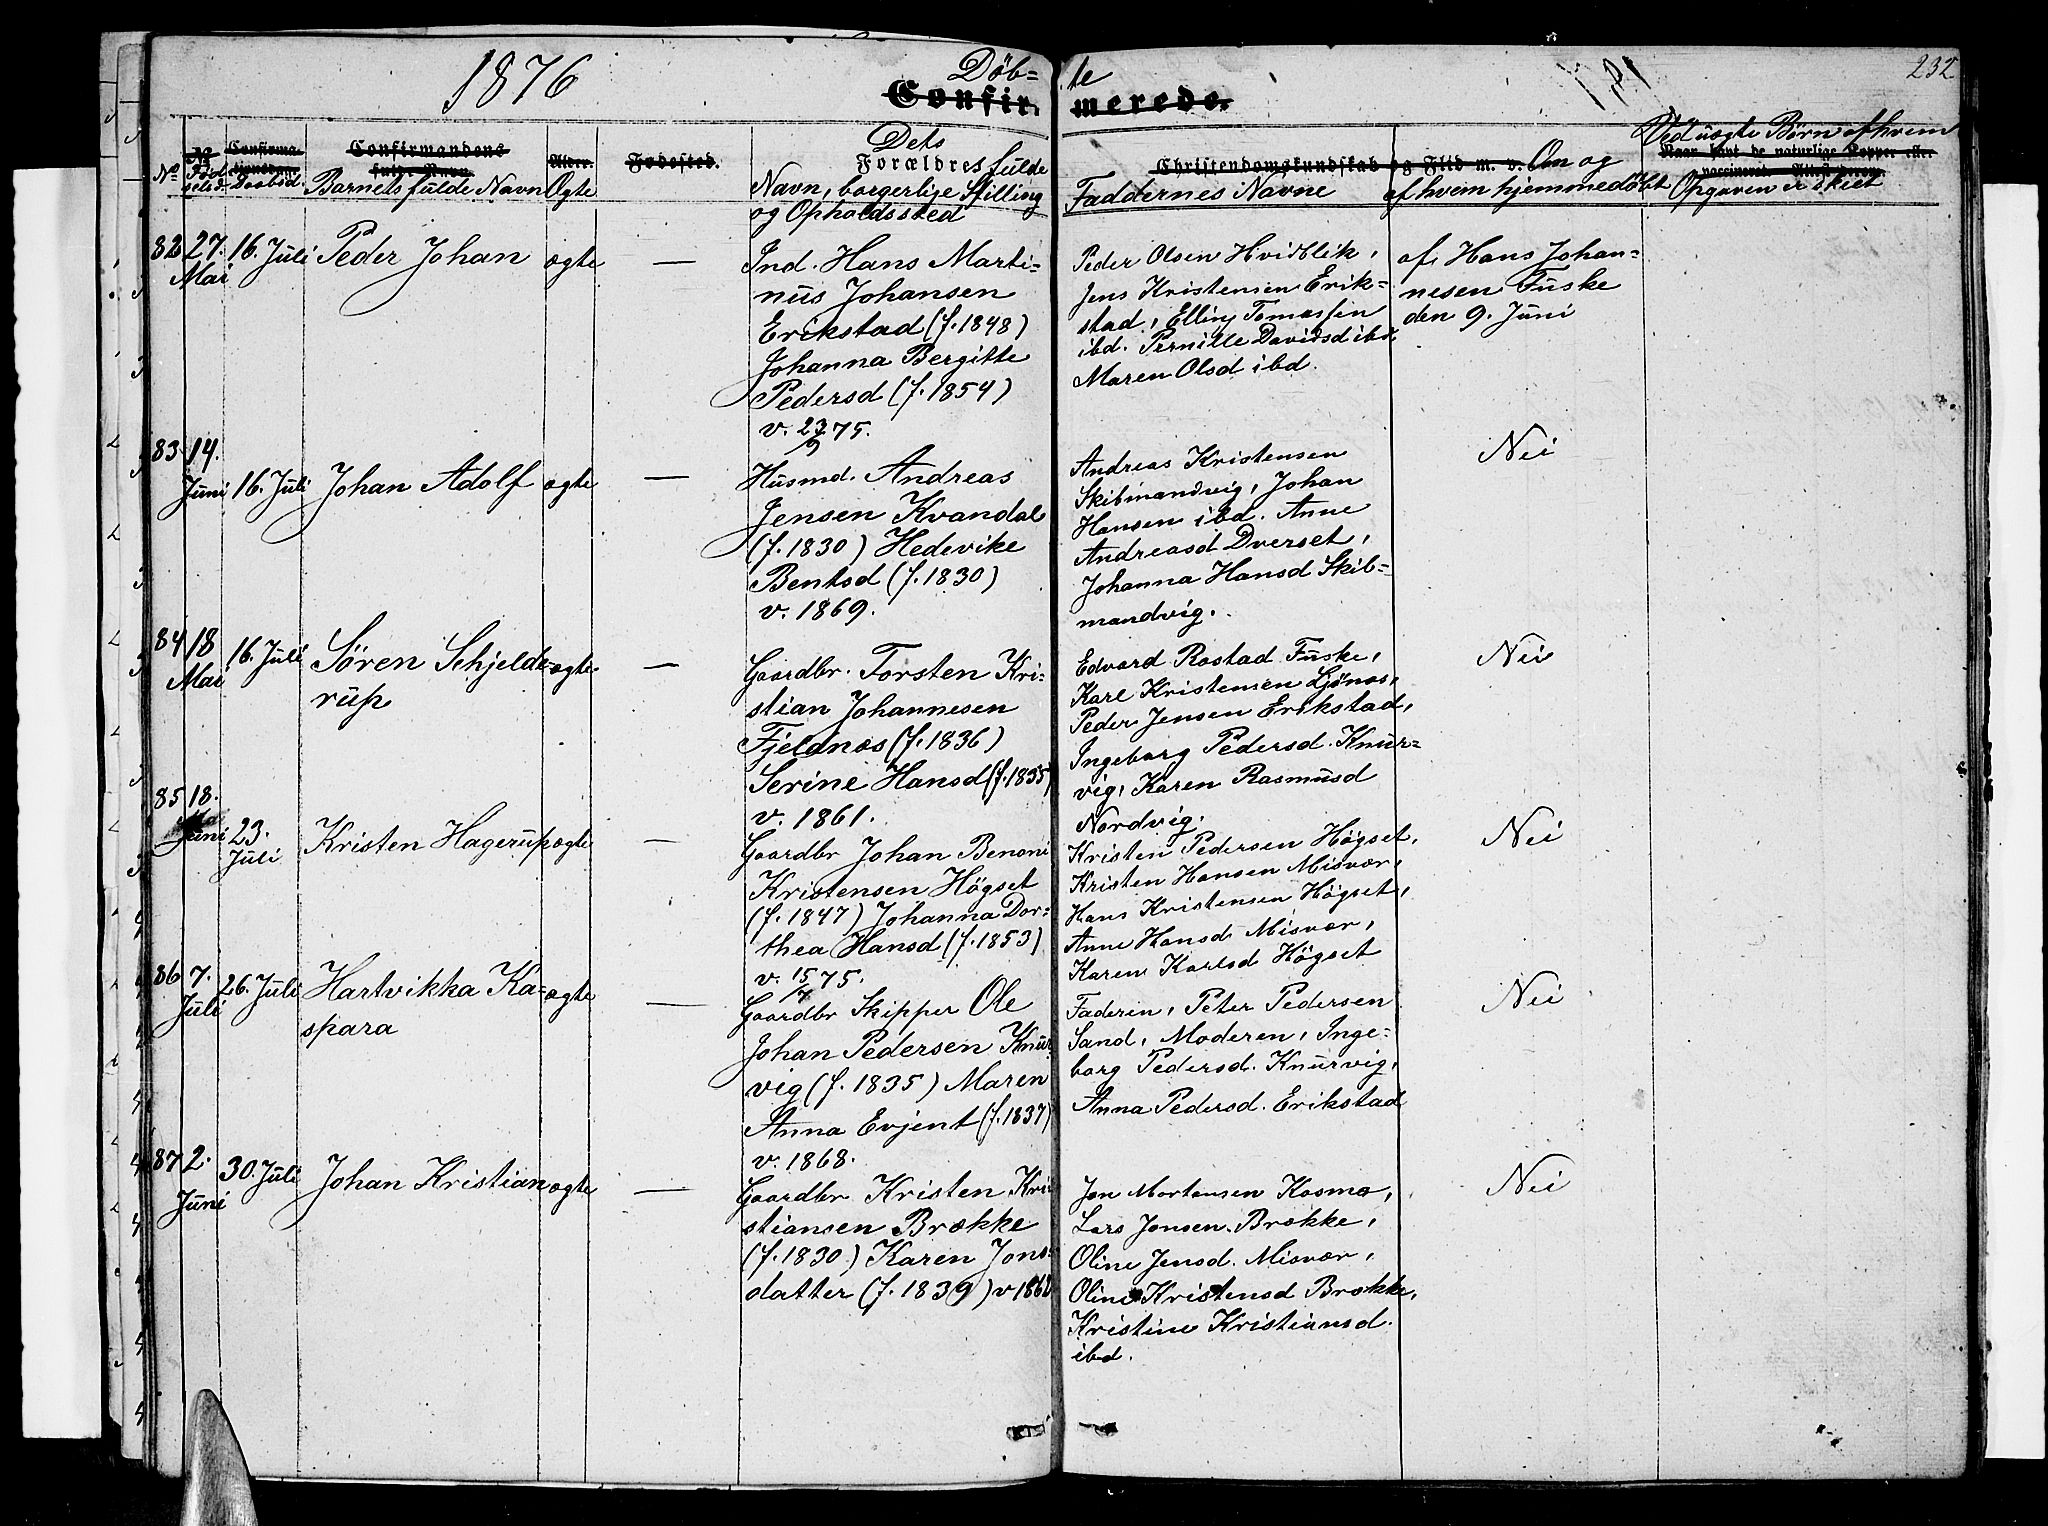 1876
Døb=
te
232
Confir
merede.
Dets
Ved uægte Børn af hvem
No
Confirmandens
Alder.
Fødested.
Forældres fulde
Christendomskundskab og Flid m. v. Om og
Naar havt de naturlige Kopper eller
Daabsd.
Barnets fulde Navn
Ægte
Navn, borgerlige Stilling
Faddernes Navne
af hvem hjemmedøbt
Opgaven er skeet
og Opholdssted
82 27. 16. Juli Peder Johan ægte —
Mai
Ind. Hans Marti=
nus Johansen
Erikstad (f. 1848)
Johanna Bergitte
Pedersd (f. 1854)
v. 23/9 75.
Peder Olsen Hvidblik,
Jens Kristensen Erik=
stad, Elling Tomassen
ibd. Pernille Davidsd ibd
Maren Olsd ibd.
af Hans Johan=
nesen Fuske
den 9. Juni
83 14.
Juni 16. Juli Johan Adolf ægte —
Husmd. Andreas
Jensen Kvandal
(f. 1830) Hedevike
Bentsd (f. 1830)
v. 1869.
Andreas Kristensen
Skibmandvig, Johan
Hansen ibd. Anne
Andreasd Dverset,
Johanna Hansd Skib=
mandvig.
Nei
84 18 16. Juli Søren Schjelde= ægte —
Mai
rup
Gaardbr. Torsten Kri=
stian Johannesen
Fjeldnæs (f. 1836)
Serine Hansd (f. 1835)
v. 1861.
Edvard Rostad Fuske,
Karl Kristensen Ljønæs,
Peder Jensen Erikstad,
Ingeborg Pedersd. Knur=
vig, Karen Rasmusd
Nordvig.
Nei
85 18.
Juni 23. Kristen Hagerup ægte —
Juli
Gaardbr Johan Benoni
Kristensen Høgset
(f. 1847) Johanna Dor=
thea Hansd (f. 1853)
v. 15/7 75.
Kristen Pedersen Høgset,
Kristen Hansen Misvær,
Hans Kristensen Høgset,
Anne Hansd Misvær,
Karen Karlsd Høgset
Nei
86 7. 26. Juli Hartvikka Ka= ægte —
Juli
spara
Gaardbr Skipper Ole
Johan Pedersen Knur
vig (f. 1835) Maren
Anna Evjent (f. 1837)
v. 1868.
Faderen, Peter Pedersen
Sand, Moderen, Inge=
borg Pedersd. Knurvig,
Anna Pedersd. Erikstad
Nei
87 2. 30. Juli Johan Kristian ægte —
Juni
Gaardbr. Kristen Kri
stiansen Brække
(f. 1830) Karen Jons=
datter (f. 1839) v 1860
Jon Mortensen Kosmo,
Lars Jonsen Brække,
Oline Jensd. Misvær,
Oline Kristensd Brække,
Kristine Kristiansd.
ibd.
Nei